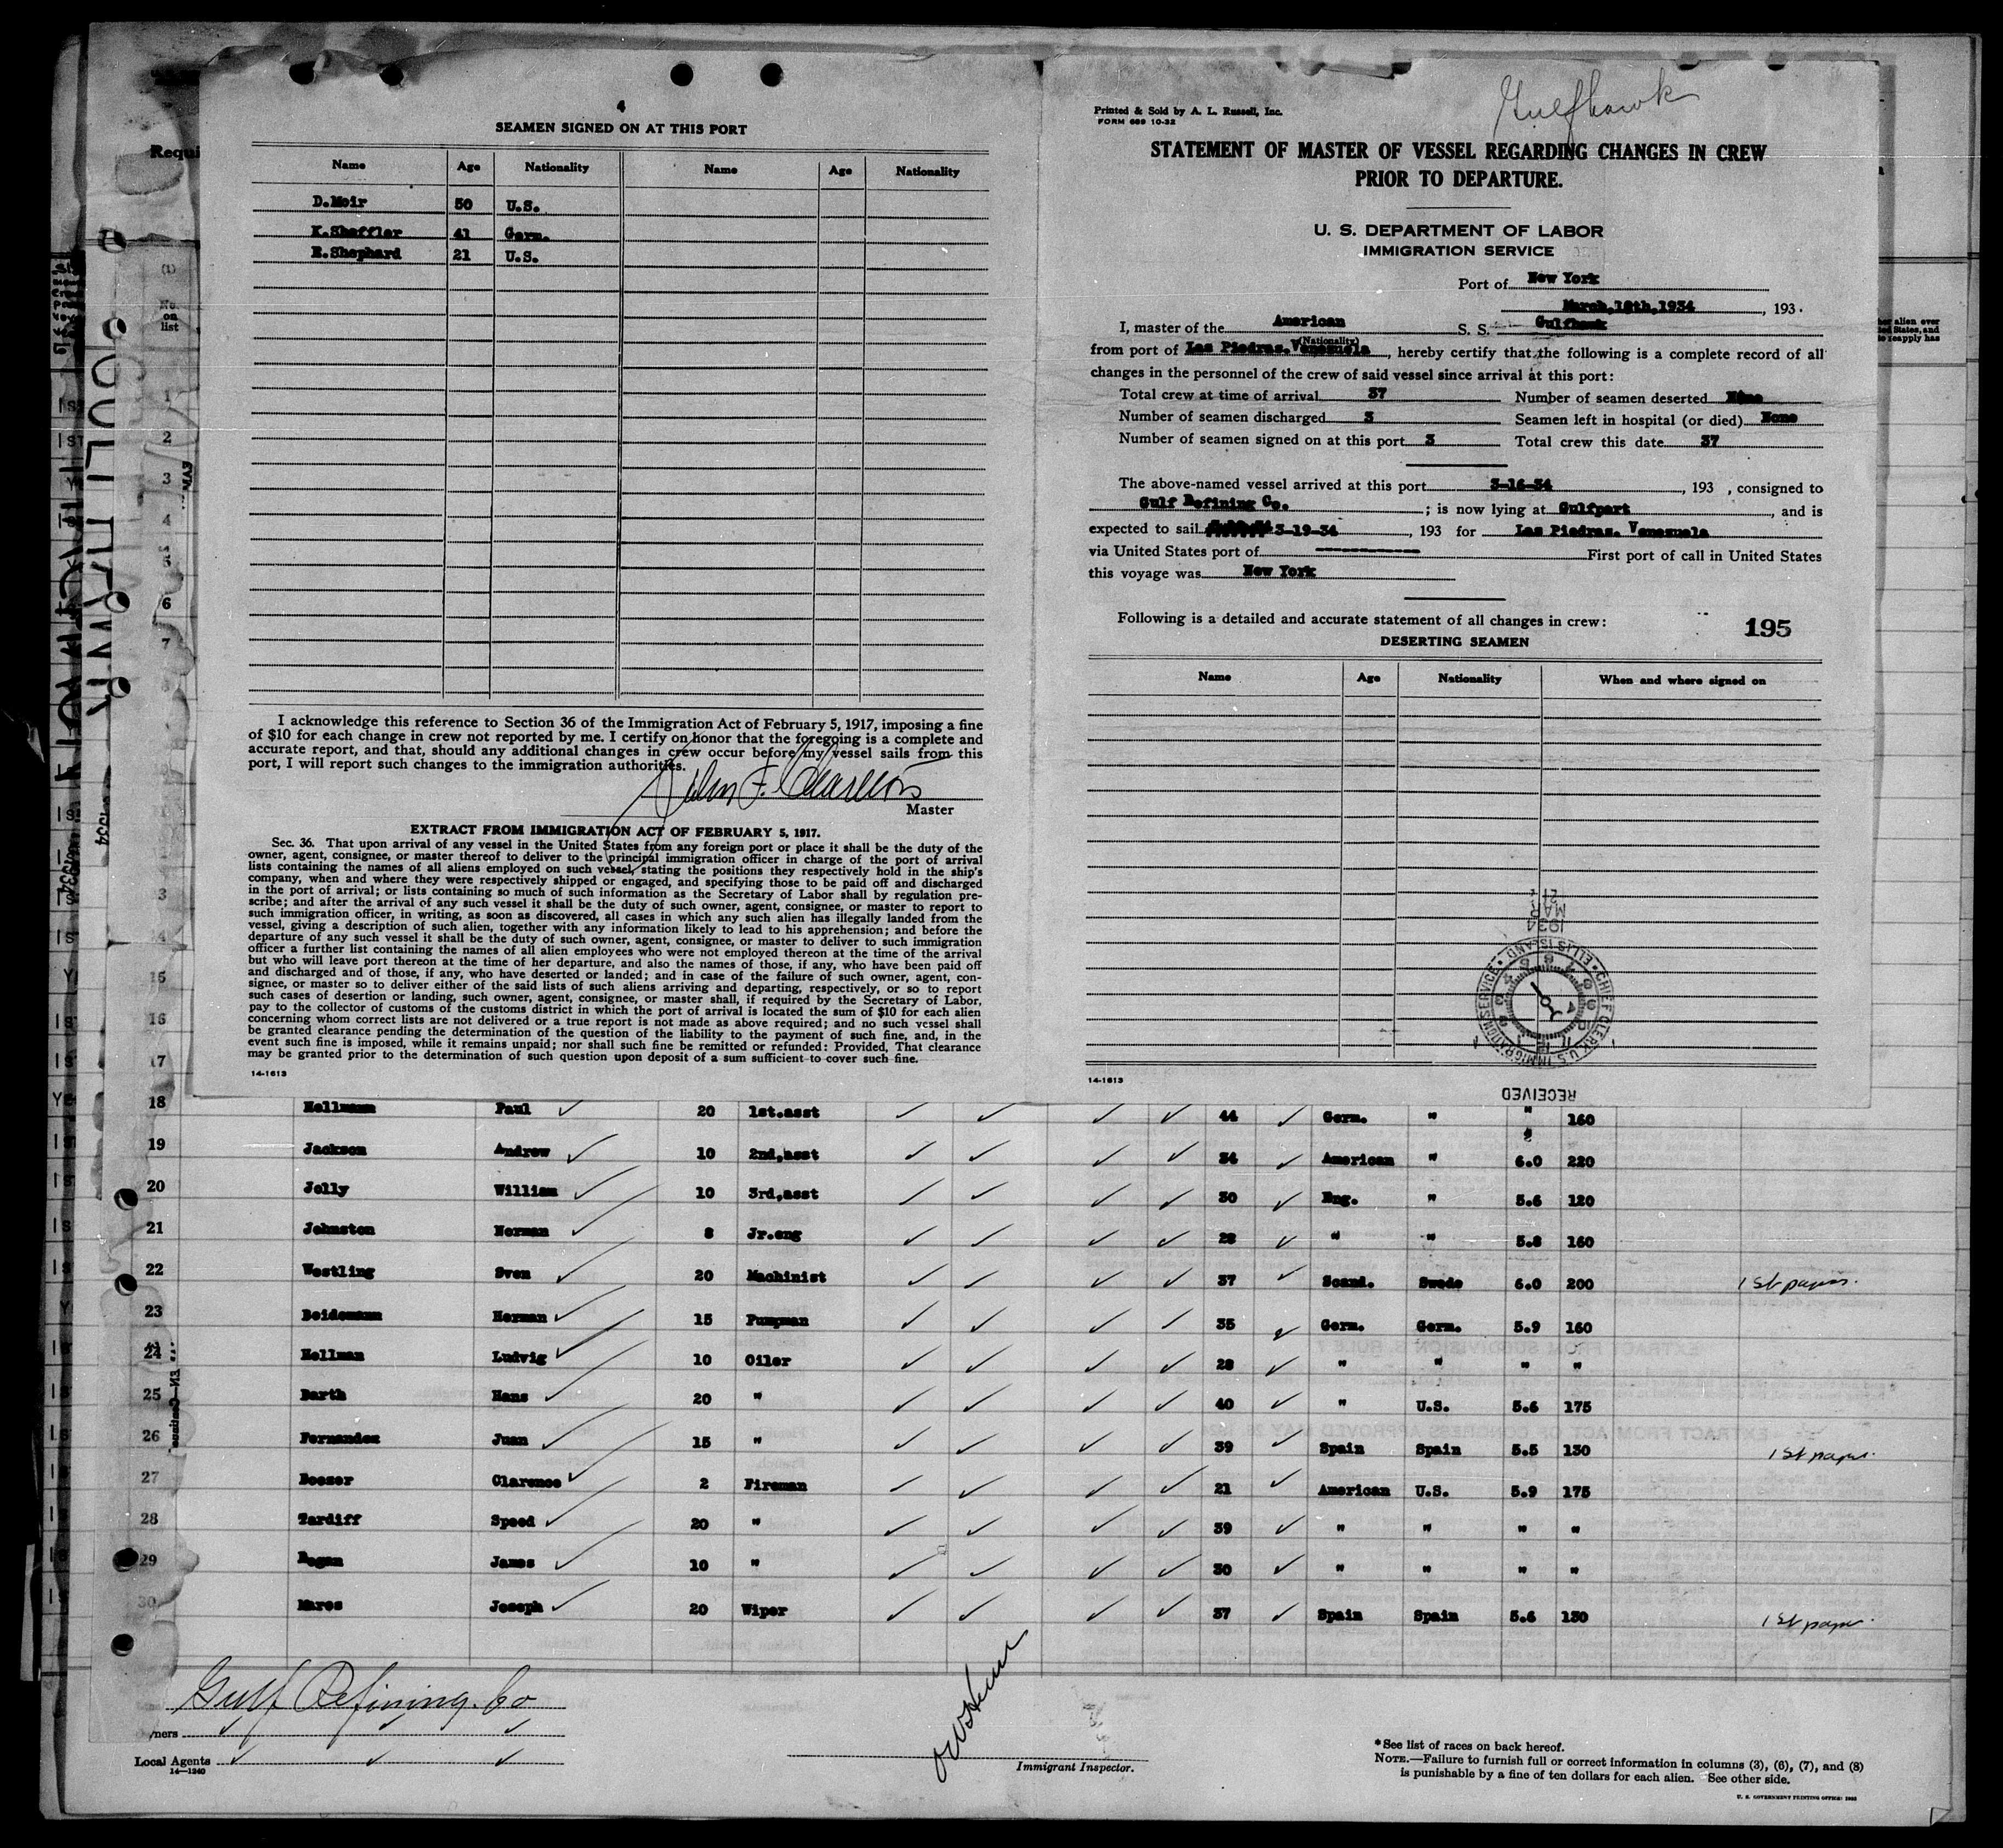 4
SEAMEN SIGNED ON AT THIS PORT
Name Age Nationality Name Age Nationality
D.Moir 50 U.S.
K.Shaffler 41 Germ.
R.Shephard 21 U.S.
I acknowledge this reference to Section 36 of the Immigration Act of February 5, 1917, imposing a fine
of $10 for each change in crew not reported by me. I certify on honor that the foregoing is a complete and
accurate report, and that, should any additional changes in crew occur before my vessel sails from this
port, I will report such changes to the immigration authorities.
John F. Charlton
Master
EXTRACT FROM IMMIGRATION ACT OF FEBRUARY 5, 1917.
Sec. 36. That upon arrival of any vessel in the United States from any foreign port or place it shall be the duty of the
owner, agent, consignee, or master thereof to deliver to the principal immigration officer in charge of the port of arrival
lists containing the names of all aliens employed on such vessel, stating the positions they respectively hold in the ship's
company, when and where they were respectively shipped or engaged, and specifying those to be paid off and discharged
in the port of arrival; or lists containing so much of such information as the Secretary of Labor shall by regulation pre-
scribe; and after the arrival of any such vessel it shall be the duty of such owner, agent, consignee, or master to report to
such immigration officer, in writing, as soon as discovered, all cases in which any such alien has illegally landed from the
vessel, giving a description of such alien, together with any information likely to lead to his apprehension; and before the
departure of any such vessel it shall be the duty of such owner, agent, consignee, or master to deliver to such immigration
officer a further list containing the names of all alien employees who were not employed thereon at the time of the arrival
but who will leave port thereon at the time of her departure, and also the names of those, if any, who have been paid off
and discharged and of those, if any, who have deserted or landed; and in case of the failure of such owner, agent, con-
signee, or master so to deliver either of the said lists of such aliens arriving and departing, respectively, or so to report
such cases of desertion or landing, such owner, agent, consignee, or master shall, if required by the Secretary of Labor,
pay to the collector of customs of the customs district in which the port of arrival is located the sum of $10 for each alien
concerning whom correct lists are not delivered or a true report is not made as above required; and no such vessel shall
be granted clearance pending the determination of the question of the liability to the payment of such fine, and, in the
event such fine is imposed, while it remains unpaid; nor shall such fine be remitted or refunded: Provided, That clearance
may be granted prior to the determination of such question upon deposit of a sum sufficient to cover such fine.
14-1613
Gulfhawk
Printed & Sold by A. L. Russell, Inc.
FORM 689 10-32
STATEMENT OF MASTER OF VESSEL REGARDING CHANGES IN CREW
PRIOR TO DEPARTURE.
U. S. DEPARTMENT OF LABOR
IMMIGRATION SERVICE
Port of New York
March,18th,1934, 193.
I, master of the American S. S. Gulfhawk
(Nationality)
from port of Las Piedras. Venezuela, hereby certify that the following is a complete record of all
changes in the personnel of the crew of said vessel since arrival at this port:
Total crew at time of arrival 37 Number of seamen deserted None
Number of seamen discharged 3 Seamen left in hospital (or died) None
Number of seamen signed on at this port 3 Total crew this date 37
The above-named vessel arrived at this port 3-16-34, 193 , consigned to
Gulf Refining Co. ; is now lying at Gulfport, and is
expected to sail 3-19-34, 193 for Las Piedras. Venezuela
via United States port of ---------- First port of call in United States
this voyage was New York
Following is a detailed and accurate statement of all changes in crew:
195
DESERTING SEAMEN
Name Age Nationality When and where signed on
1934
MAR
21
CHIEF CLERK U.S. IMMIGRATION SERVICE • ELLIS ISLAND •
RECEIVED
14-1613
Requi
(1)
No.
on
list
1
2
3
4
5
6
7
16
17
18 Hellmann Paul 20 1st.asst 44 Germ. " " 160
19 Jackson Andrew 10 2nd,asst 34 American " 6.0 220
20 Jolly William 10 3rd,asst 30 Eng. " 5.6 120
21 Johnston Norman 8 Jr.eng 28 " " 5.8 160
22 Westling Sven 20 Machinist 37 Scand. Swede 6.0 200 1st papers.
23 Beidemann Herman 15 Pumpman 35 Germ. Germ. 5.9 160
24 Hellman Ludvig 10 Oiler 28 " " " "
25 Barth Hans 20 " 40 " U.S. 5.6 175
26 Fernandez Juan 15 " 39 Spain Spain 5.5 130 1st paper.
27 Boozer Clarence 2 Fireman 21 American U.S. 5.9 175
28 Tardiff Speed 20 " 39 " " " "
29 James 10 " 30 " " " "
30 Mares Joseph 20 Wiper 37 Spain Spain 5.6 130 1st paper.
Gulf Refining. Co
Owners
Local Agents
14—1240
Immigrant Inspector.
*See list of races on back hereof.
NOTE.—Failure to furnish full or correct information in columns (3), (6), (7), and (8)
is punishable by a fine of ten dollars for each alien. See other side.
U. S. GOVERNMENT PRINTING OFFICE: 1933